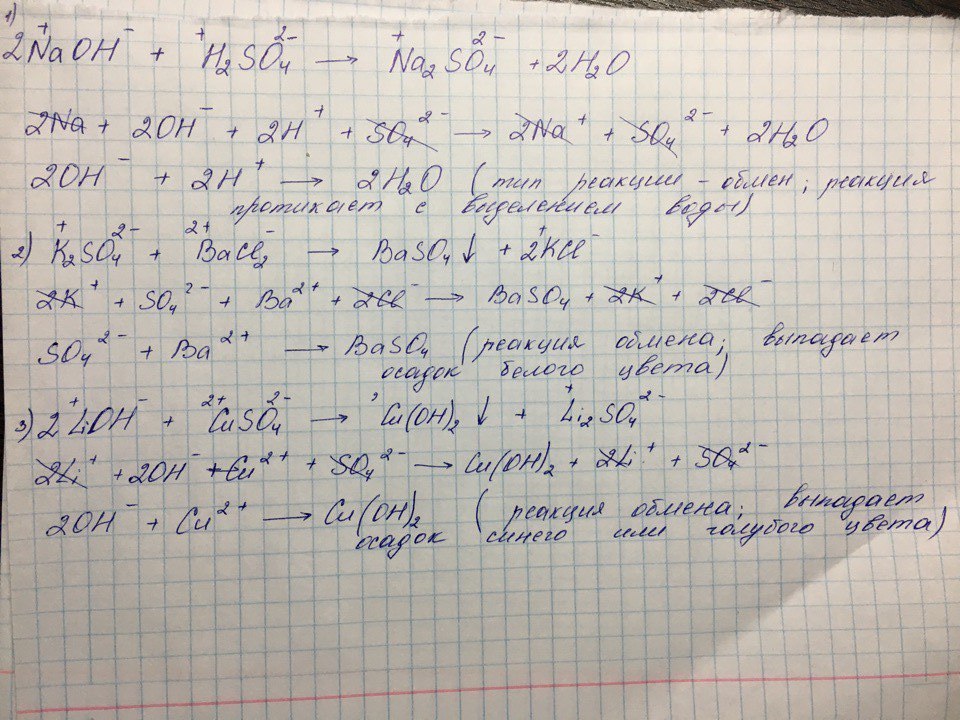 1)
2Na⁺OH⁻ + H₂⁺SO₄²⁻ → Na₂⁺SO₄²⁻ + 2H₂O
2Na + 2OH⁻ + 2H⁺ + SO₄²⁻ → 2Na⁺ + SO₄²⁻ + 2H₂O
2OH⁻ + 2H⁺ → 2H₂O (тип реакции - обмен; реакция
протикает с выделением воды)
2) K₂⁺SO₄²⁻ + Ba²⁺Cl₂⁻ → BaSO₄↓ + 2K⁺Cl⁻
2K⁺ + SO₄²⁻ + Ba²⁺ + 2Cl⁻ → BaSO₄ + 2K⁺ + 2Cl⁻
SO₄²⁻ + Ba²⁺ → BaSO₄ (реакция обмена; выпадает
осадок белого цвета)
3) 2Li⁺OH⁻ + Cu²⁺SO₄²⁻ → Cu(OH)₂↓ + Li₂⁺SO₄²⁻
2Li⁺ + 2OH⁻ + Cu²⁺ + SO₄²⁻ → Cu(OH)₂ + 2Li⁺ + SO₄²⁻
2OH⁻ + Cu²⁺ → Cu(OH)₂ (реакция обмена; выпадает
осадок синего или голубого цвета)